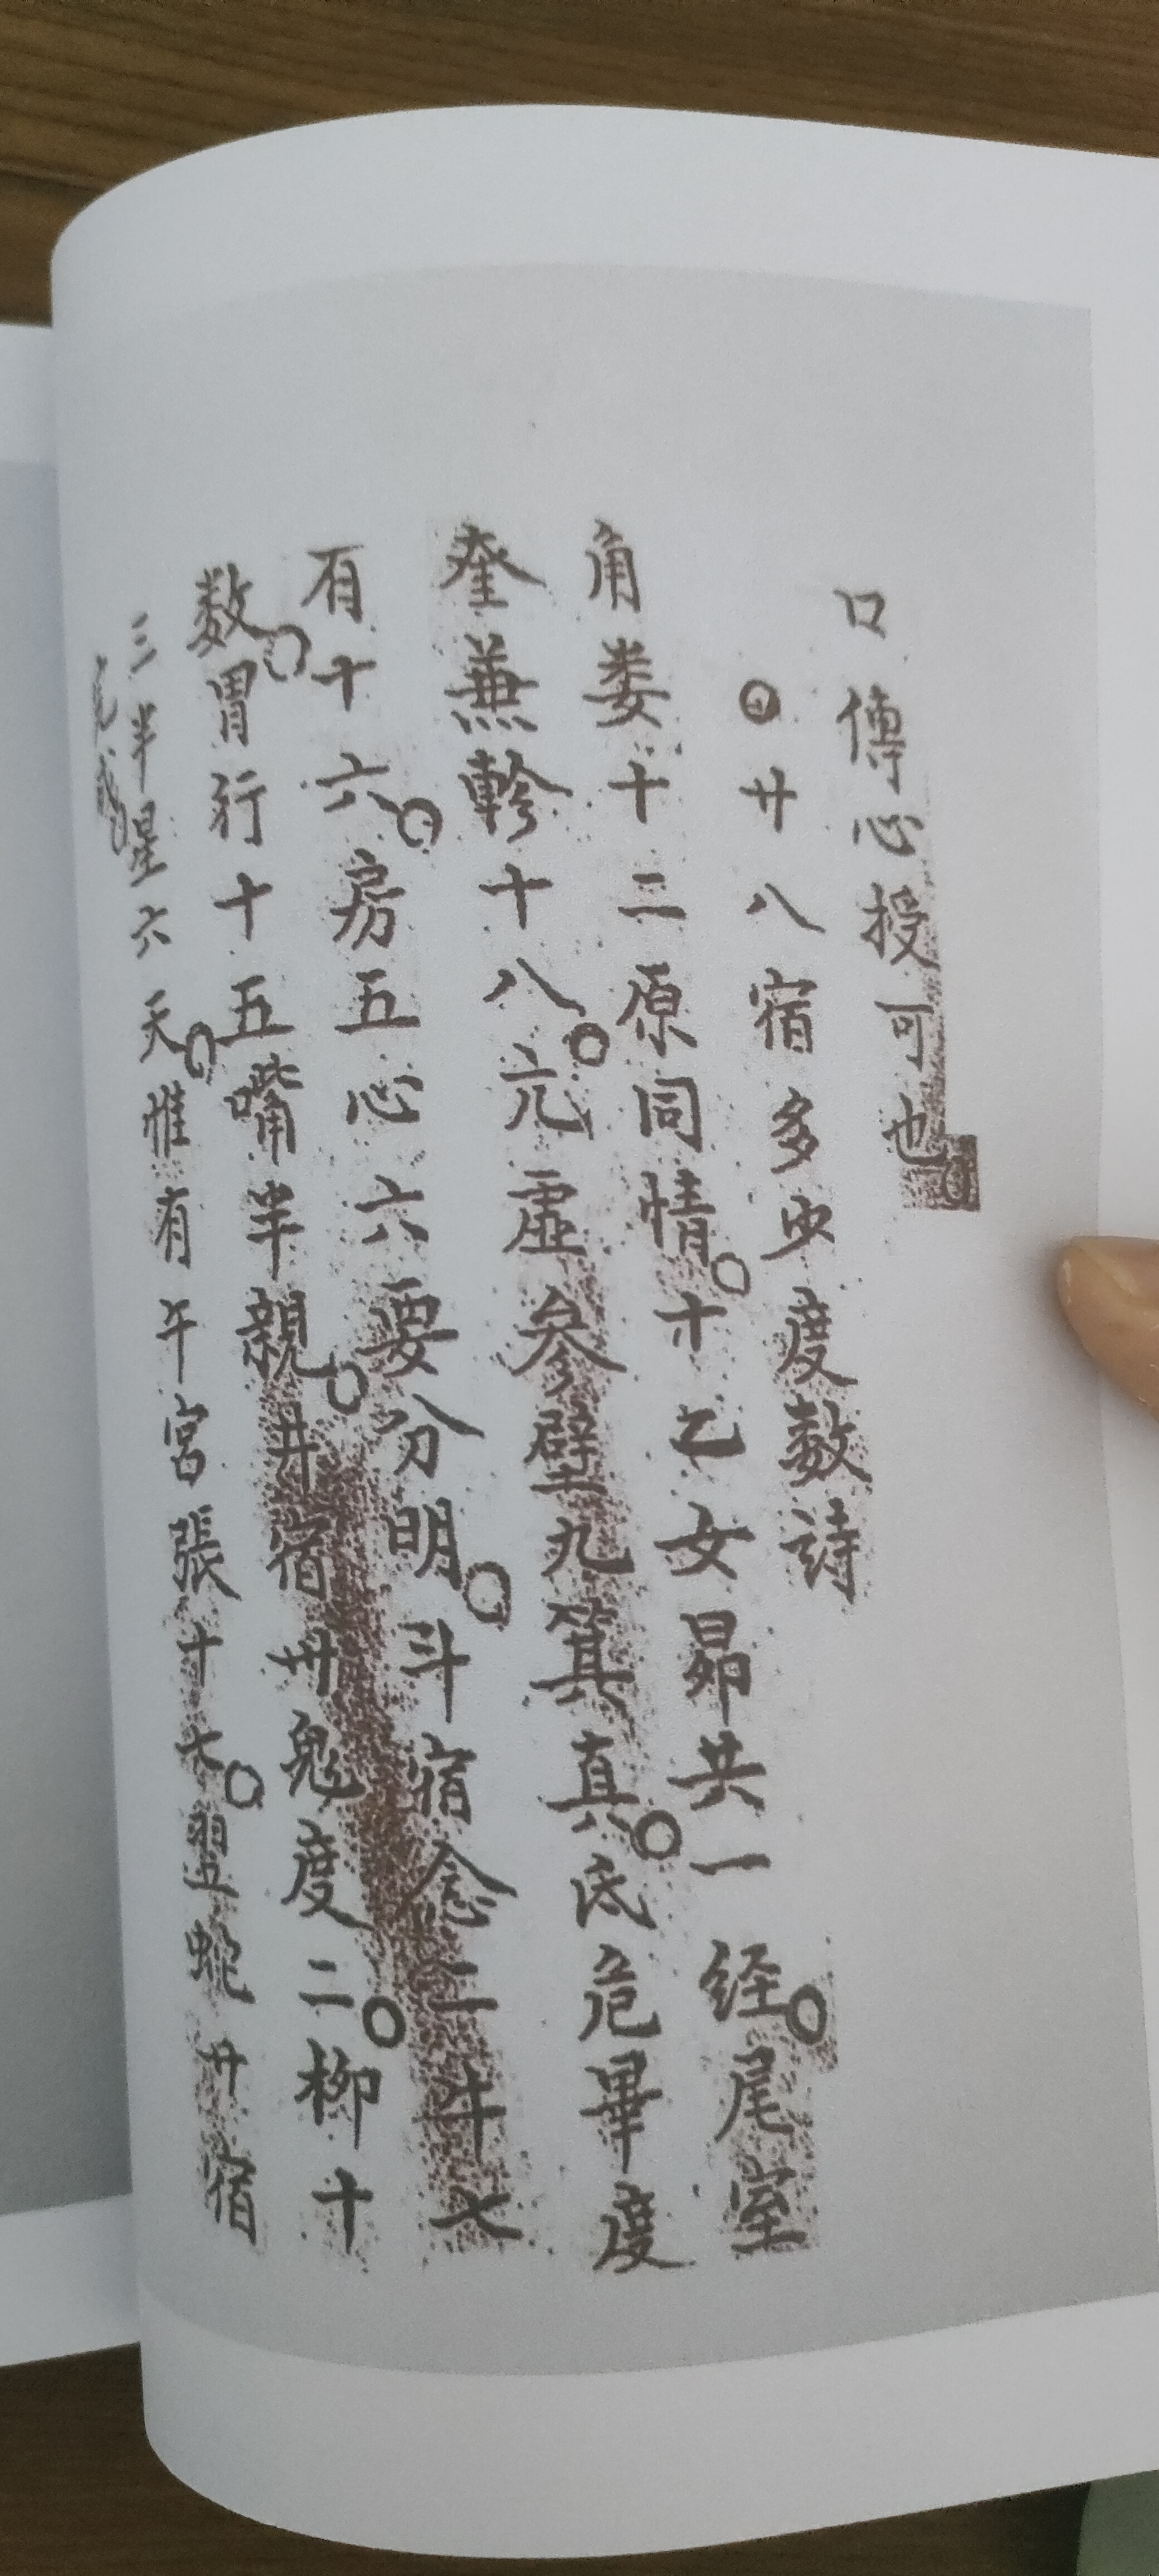 口傳心授可也
廿八宿多少度数詩
角娄十二原同情十乙女昴共一经尾室
奎兼軫十八亢虚参壁九箕真氐危畢度
有十六房五心六要分明斗宿念二牛七
数胃行十五嘴半親井宿卅鬼度二柳十
三半星六天惟有午宫張十七翌蛇廿宿